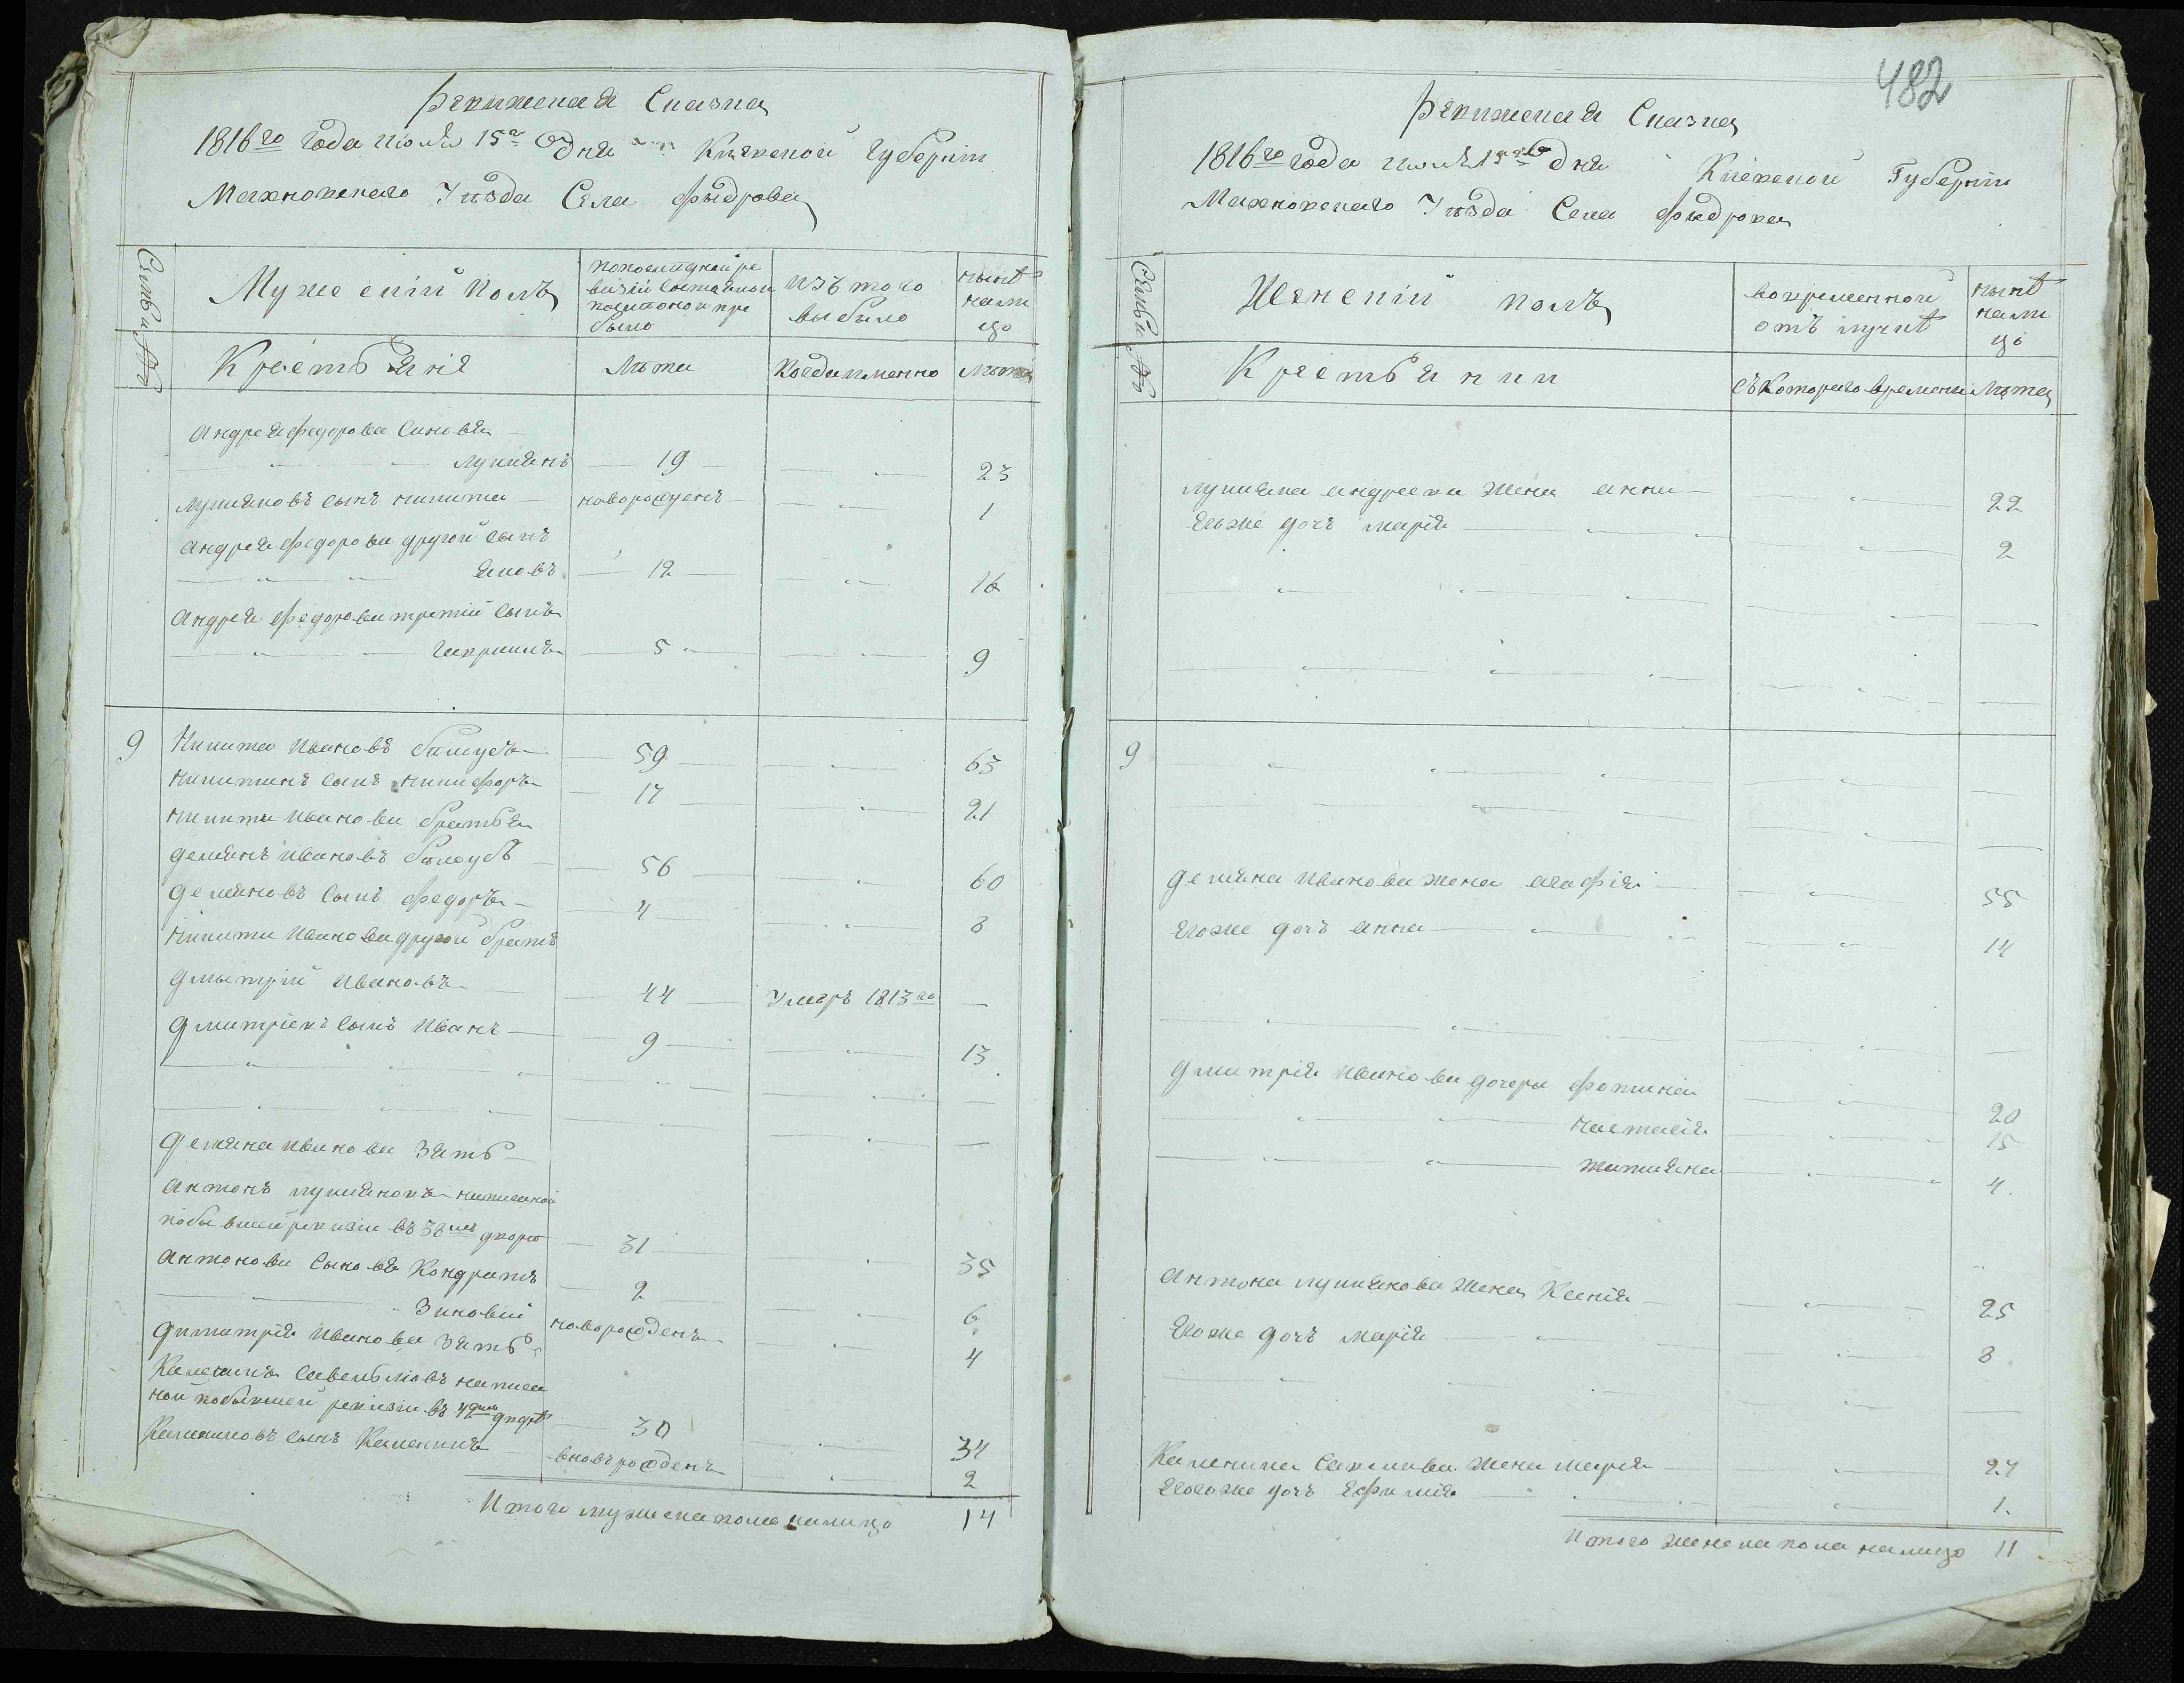 Ревижская Сказка
1816го года июля 15го дня Киевской Губернии
Махновскаго Уѣзда Села Фыдрова
Семьи №
Мужеский полъ
по последней ревизии состояло и после оной прибыло
изъ того выбыло
ныне на лицо
Крестьяне
Лѣта
Когда именно
Лѣта
Андрея Федорова Синовья
Лукиянъ 19 23
Лукияновъ сынъ Никита новорожденъ 1
Андрея Федорова другой сынъ
Яковъ 12 16
Андрея Федорова третий сынъ
Гаврилъ 5 9
9 Никита Ивановъ Билоусъ 59 63
Никитинъ сынъ Никифоръ 17 21
Никиты Иванова братья
Демянъ Ивановъ Билоусъ 56 60
Демяновъ сынъ Федоръ 4 8
Никиты Иванова другой братъ
Дмытрий Ивановъ 44 Умеръ 1813го
Дмитриевъ сынъ Иванъ 9 13
Демяна Иванова Зять
Антонъ Лукияновъ написаной
по бывшей ревизии въ 38мъ дворе 31 35
Антонова Сыновя Кондратъ 2 6
Зиновий новорожденъ 4
Димитрия Иванова Зять
Калениkъ Савельевъ написа
ной по бывшей ревизии въ 42мъ дворе 30 34
сынъ вновь рожденъ 2
Итого мужеска пола налицо 14
482
Ревижская Сказка
1816го года июля 15го дня Киевской Губернии
Махновскаго Уѣзда Села Фыдрова
Семьи №
Женский полъ
во временной отълучке
ныне на лицо
Крестьянки
съ котораго времени
Лѣта
Лукияна Андреева жена Анна 22
Егоже дочъ Мария 2
9
Демяна Иванова жена Агафия 55
Егоже дочъ Анна 14
Дмитрия Иванова дочери Фотиния 20
Настасия 15
Татияна 4
Антона Лукиянова жена Ксения 25
Егоже дочъ Мария 8
жена Мария 24
Егоже дочъ Ефимия 1
Итого женска пола налицо 11